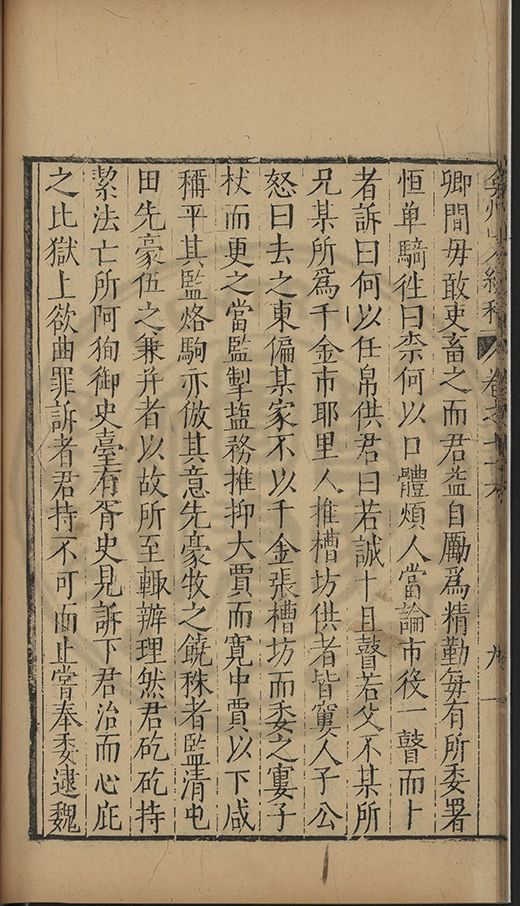 卿間毋敢吏畜之而君益自勵爲精勤每有所委署
恒单騎徃曰柰何以口體煩人當論市役一瞽而卜
者訴曰何以任帛供君曰若誠十目瞽若父不某所
兄某所爲千金市耶里人推槽坊供者皆窶人子公
怒曰去之東偏某家不以千金張槽坊而委之窶子
杖而更之當監掣塩務推抑大賈而寛中賈以下咸
稱平其監烙駒亦倣其意先豪牧之饒秣者監清屯
田先豪伍之兼并者以故所至輙辦理然君矻矻持
絜法亡所阿狥御史臺有胥史見訴下君治而心庇
之比獄上欲曲罪訴者君持不可而止甞奉委逮魏
弇州山人續稿
卷之
九